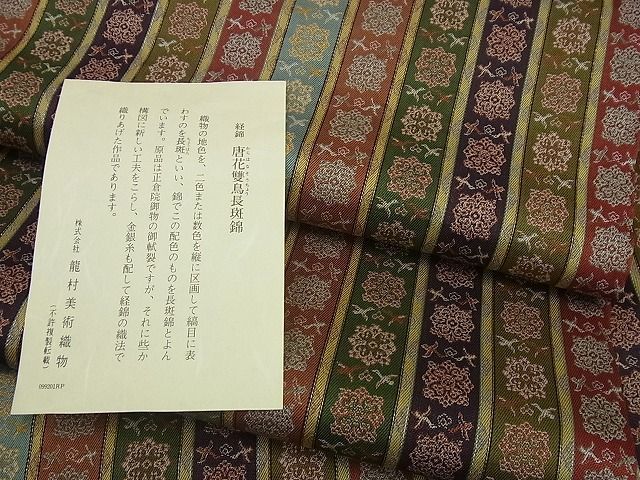 経錦 唐花雙鳥長斑錦
織物の地色を、二色または数色を縦に区画して縞目に表
わすのを長斑といい、錦でこの配色のものを長斑錦とよん
でいます。原品は正倉院御物の御軾裂ですが、それに些か
構図に新しい工夫をこらし、金銀糸も配して経錦の織法で
織りあげた作品であります。
株式会社 龍村美術織物
(不許複製転載)
099201R.P